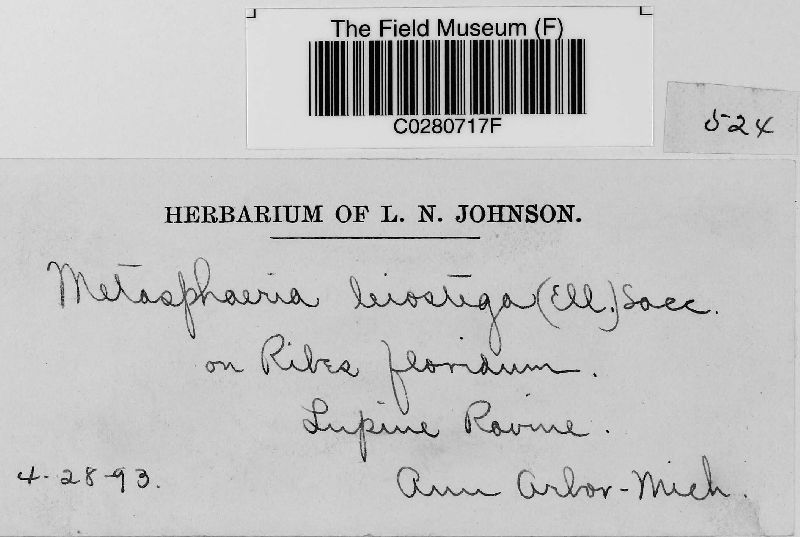 The Field Museum (F)
C0280717F
524
HERBARIUM OF L. N. JOHNSON.
Metasphaeria leiostega (Ell.) Sacc.
on Ribes floridum.
Lupine Ravine.
4-28-93.
Ann Arbor-Mich.